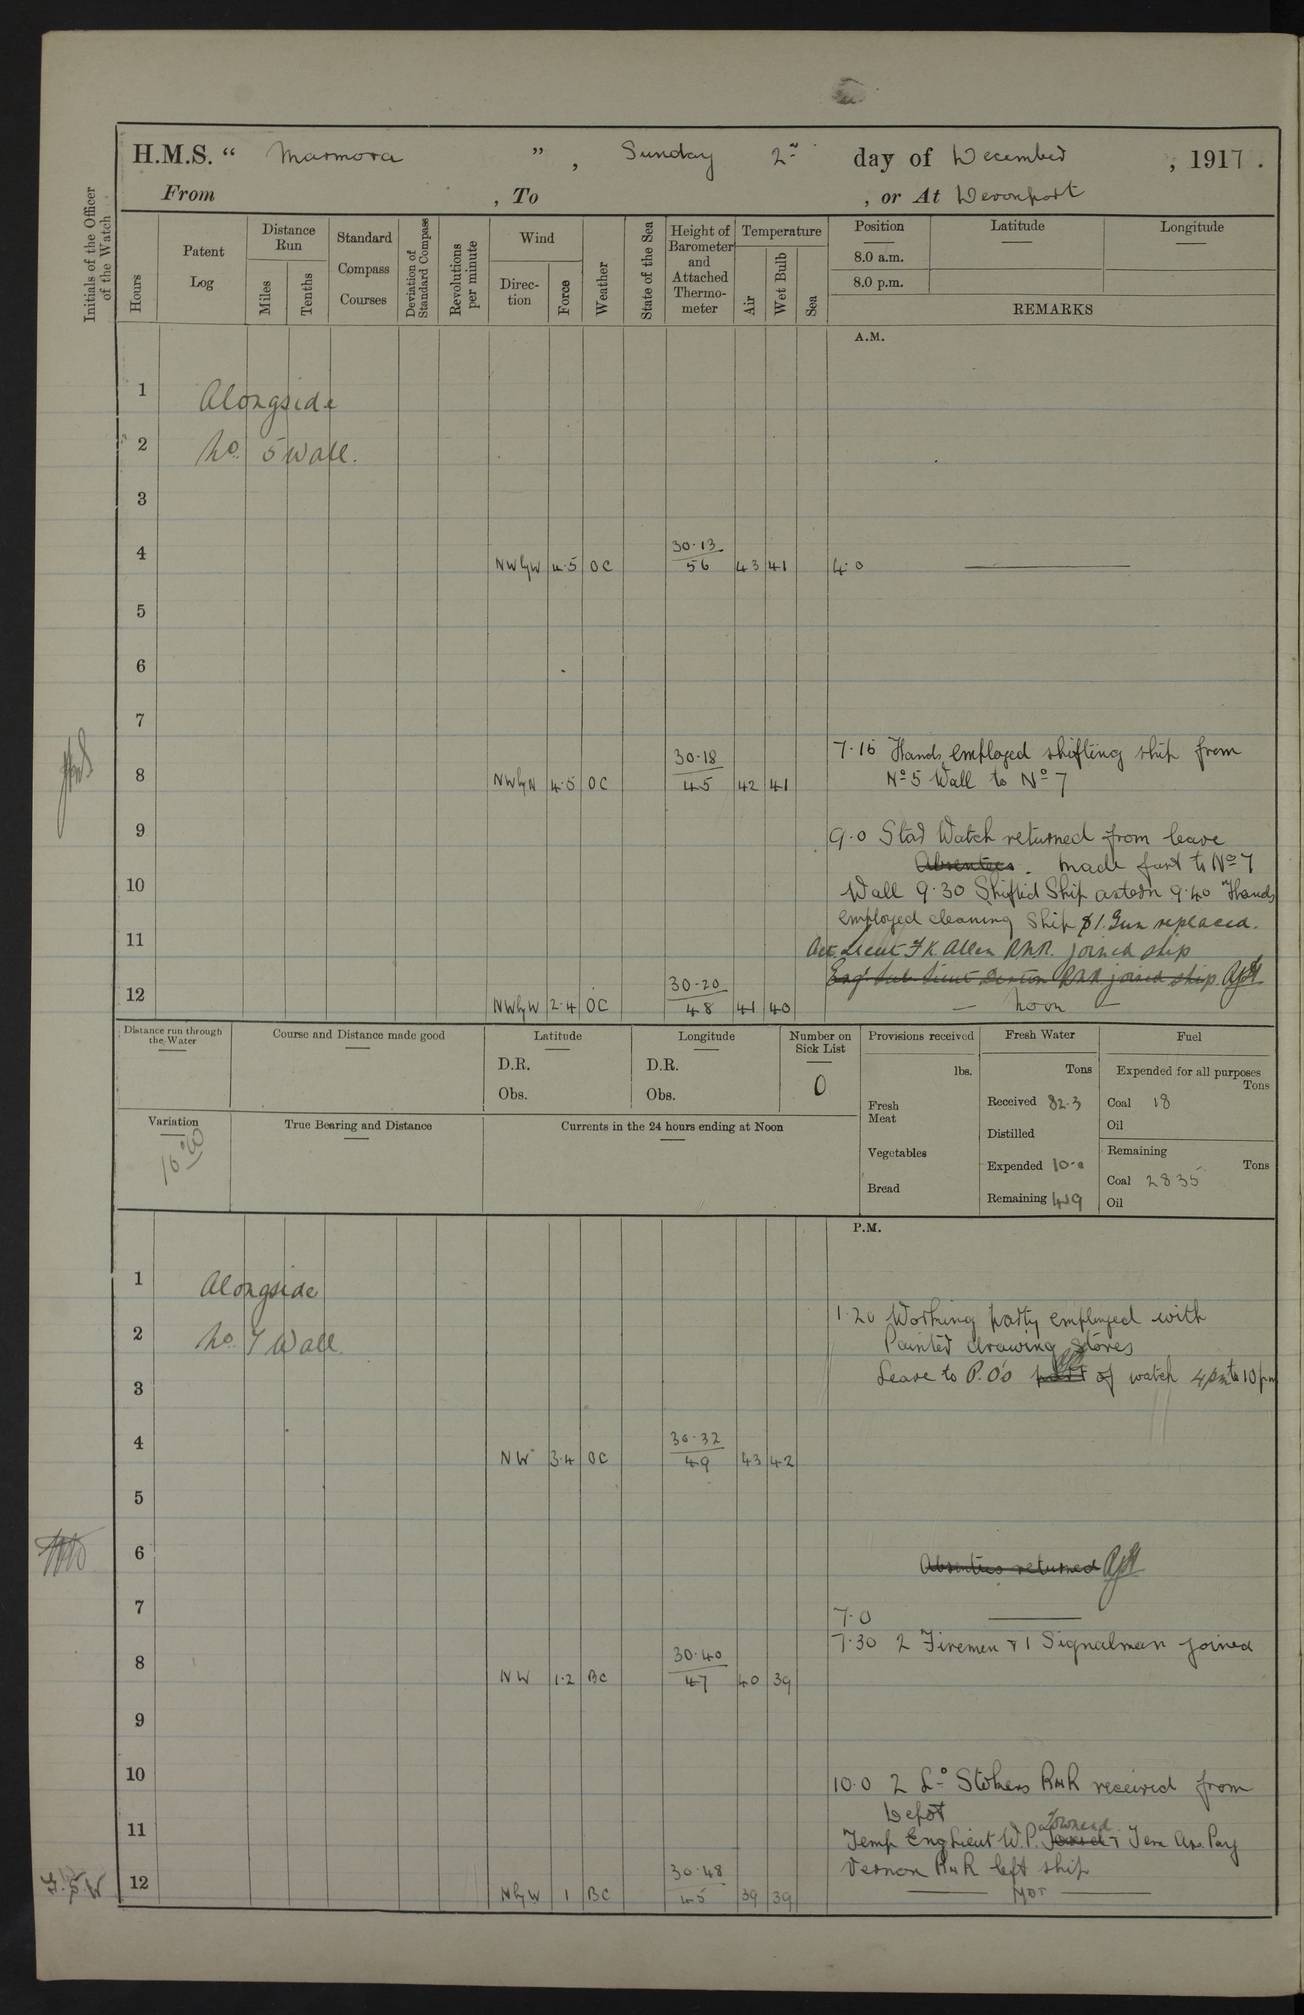 H.M.S. " Marmora " , Sunday 2nd day of December , 1917.
From , To , or At Devonport
Initials of the Officer of the Watch
Hours
Patent Log
Distance Run
Miles
Tenths
Standard Compass Courses
Deviation of Standard Compass
Revolutions per minute
Wind
Direc-tion
Force
Weather
State of the Sea
Height of Barometer and Attached Thermo-meter
Temperature
Air
Wet Bulb
Sea
Position
8.0 a.m.
8.0 p.m.
Latitude
Longitude
REMARKS
A.M.
1 Alongside
2 No. 5 Wall.
3
4 NWbyW 4.5 OC 30.13 56 43 41 4.0
5
6
7
7.15 Hands employed shifting ship from
8 NWbyN 4.5 OC 30.18 45 42 41 No 5 Wall to No 7
9 9.0 Stad Watch returned from leave
Absentees. Made fast to No 7
10 Wall 9.30 Shifted Ship astern 9.40 Hands
employed cleaning Ship 1. Gun replaced.
11 Act. Lieut F.K. Allen RNR. joined ship
Eng. Sub. Lieut RNR joined ship
12 NWbyW 2.4 OC 30.20 48 41 40 — Noon —
Distance run through the Water
Course and Distance made good
Latitude
D.R.
Obs.
Longitude
D.R.
Obs.
Number on Sick List
0
Variation
16°W
True Bearing and Distance
Currents in the 24 hours ending at Noon
Provisions received
lbs.
Fresh Meat
Vegetables
Bread
Fresh Water
Tons
Received 82.3
Distilled
Expended
Remaining
Fuel
Expended for all purposes
Tons
Coal 18
Oil
Remaining
Tons
Coal 2835
Oil
P.M.
1 Alongside
1.20 Working party employed with
2 No. 7 Wall.
Painted drawing stores
3 Leave to P.O's of watch 4pm to 10pm
4 NW 3.4 OC 30.32 49 43 42
5
6 Absentees returned
7 7.0
7.30 2 Firemen + 1 Signalman joined
8 NW 1.2 BC 30.40 47 40 39
9
10 10.0 2 Stokers RNR received from
Depot
11 Temp Eng Lieut W.P. Townend + Tem Ass. Pay
Vernon RNR left ship
12 NbyW 1 BC 30.48 45 39 39